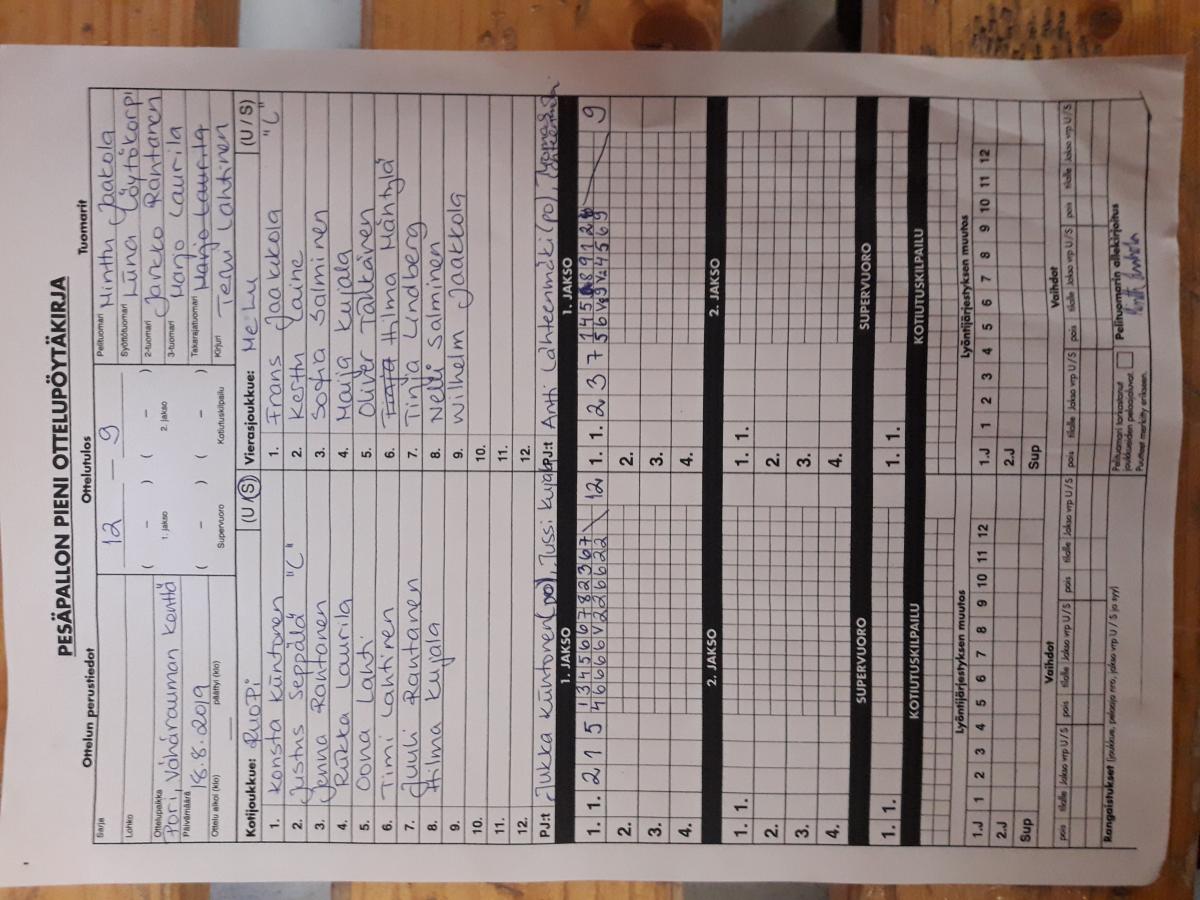 PESÄPALLON PIENI OTTELUPÖYTÄKIRJA
Ottelun perustiedot
Ottelutulos
Tuomarit
Sarja
Lohko
Ottelupaikka
Pori, Vähärauman kenttä
Päivämäärä 18.8.2019
Ottelu alkoi (klo)
päättyi (klo)
12 — 9
( – ) ( – )
1. jakso 2. jakso
( – ) ( – )
Supervuoro Kotiutuskilpailu
Pelituomari Minttu Jaakola
Syöttötuomari Liina Löytökorpi
2-tuomari Jarkko Rantanen
3-tuomari Marjo Laurila
Takarajatuomari Marjo Laurila
Kirjuri Teemu Lahtinen
Kotijoukkue: RuoPi (U/S)
1. Konsta Kiintonen
2. Justus Seppälä "C"
3. Jenna Rantanen
4. Riikka Laurila
5. Oona Lahti
6. Timi Lahtinen
7. Juuli Rantanen
8. Hilma Kujala
9.
10.
11.
12.
PJ:t Jukka Kiintonen (po), Jussi Kujala
Vierasjoukkue: MeLu (U/S)
1. Frans Jaakkola "C"
2. Kerttu Laine
3. Sofia Salminen
4. Maija Kujala
5. Oliver
6. Hilma Mäntylä
7. Tinja Lindberg
8. Nelli Salminen
9. Wilhelm Jaakkola
10.
11.
12.
PJ:t Antti Lähteenmäki (po),
1. JAKSO
1. JAKSO
1. 1. 2 1 5 12
2.
3.
4.
1. 1. 2 3 7 9
2.
3.
4.
2. JAKSO
2. JAKSO
1. 1.
2.
3.
4.
1. 1.
2.
3.
4.
SUPERVUORO
SUPERVUORO
1. 1.
1. 1.
KOTIUTUSKILPAILU
KOTIUTUSKILPAILU
Lyöntijärjestyksen muutos
Lyöntijärjestyksen muutos
1.J 1 2 3 4 5 6 7 8 9 10 11 12
2.J
Sup
1.J 1 2 3 4 5 6 7 8 9 10 11 12
2.J
Sup
Vaihdot
Vaihdot
pois tilalle Jakso vrp U/S pois tilalle Jakso vrp U/S pois tilalle Jakso vrp U/S
pois tilalle Jakso vrp U/S pois tilalle Jakso vrp U/S pois tilalle Jakso vrp U/S
Rangaistukset (joukkue, pelaaja nro, jakso vrp U / S ja syy)
Pelituomari tarkastanut joukkueiden pelaajaluvat.
Puutteet merkitty erikseen.
Pelituomarin allekirjoitus